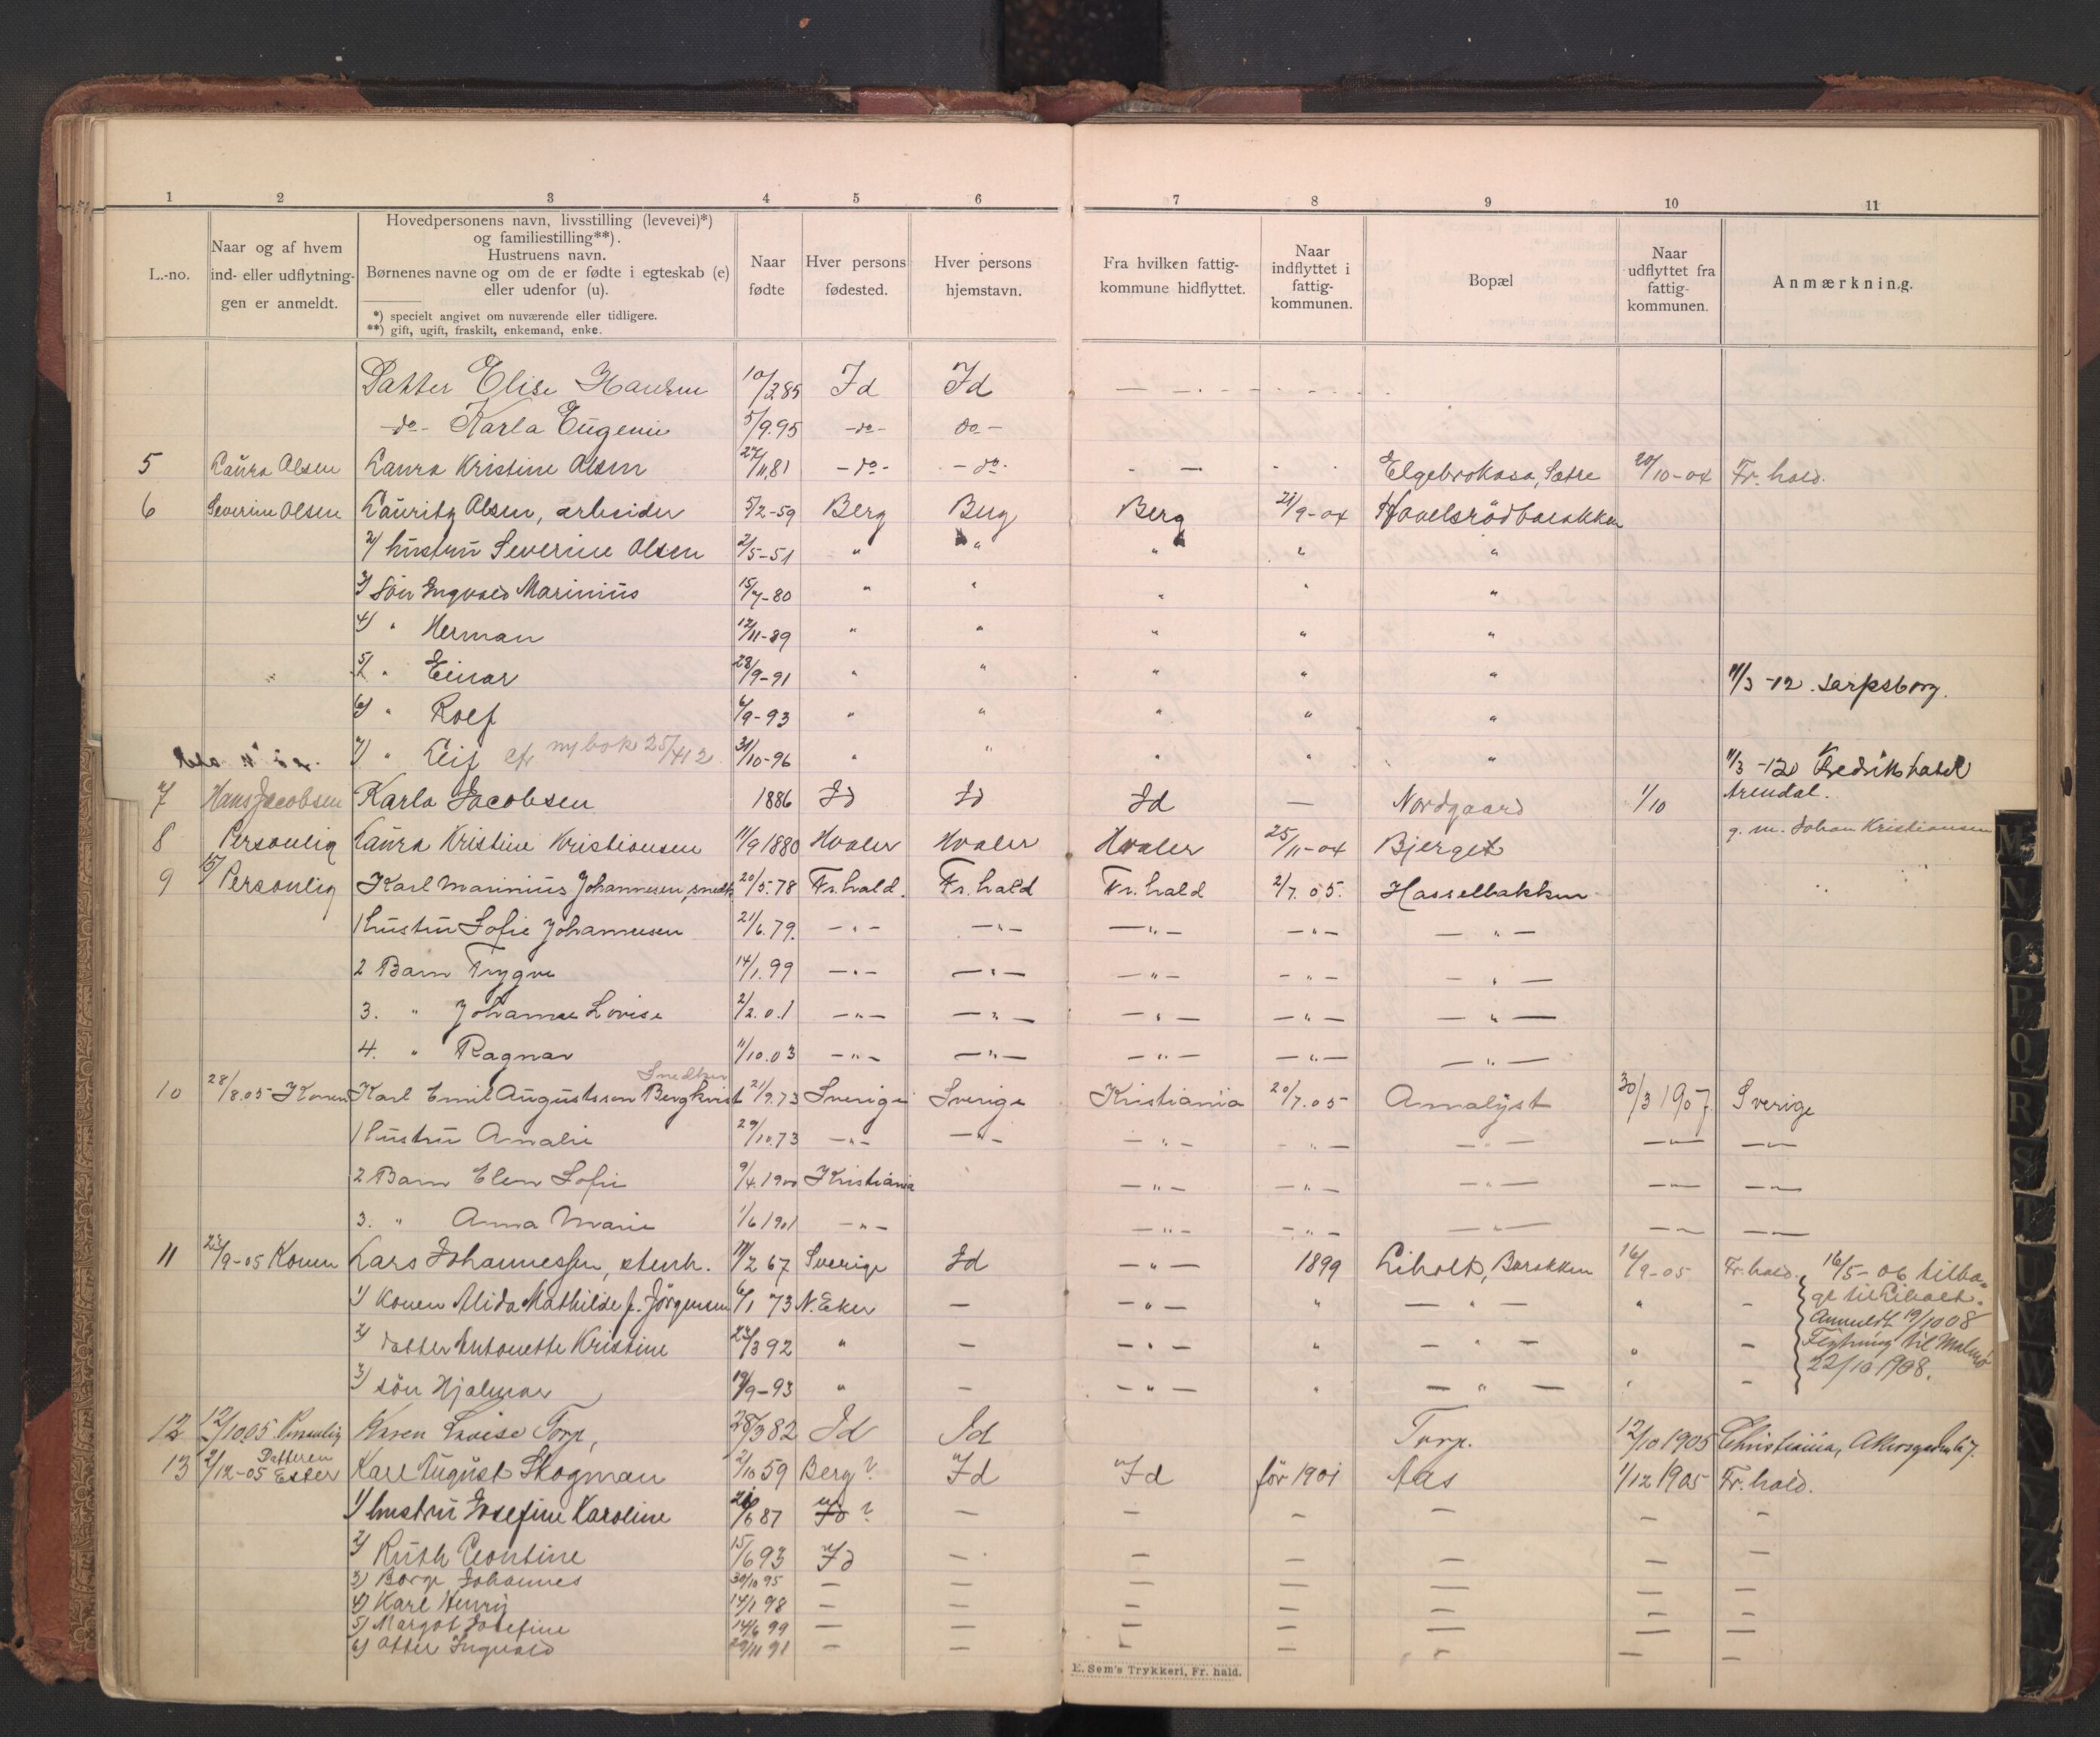 1 2 3 4 5 6 7 8 9 10 11
L.-no.
Naar og af hvem
ind- eller udflytnin-
gen er anmeldt.
Hovedpersonens navn, livsstilling (levevei)*)
og familiestilling**).
Hustruens navn.
Børnenes navne og om de er fødte i egteskab (e)
eller udenfor (u).
*) specielt angivet om nuværende eller tidligere.
**) gift, ugift, fraskilt, enkemand, enke.
Naar
fødte
Hver persons
fødested.
Hver persons
hjemstavn.
Fra hvilken fattig-
kommune hidflyttet.
Naar
indflyttet i
fattig-
kommunen.
Bopæl
Naar
udflyttet fra
fattig-
kommunen.
Anmærkning.
Datter Elise Hansen 10/3 85 Id Id
-do- Karla Eugenie 5/9.95 -do- do-
5 Laura Olsen Laura Kristine Olsen 27/11.81 -do- -do- Elgebrokasa, Sætre 20/10-04 Fr.hald.
6 Severine Olsen Lauritz Olsen, arbeider 5/2-59 Berg Berg Berg 21/9-04 Hovelsrødbarakken
2) hustru Severine Olsen 2/5-51 " " " " "
3) Søn Ingvald Marinius 15/7-80 " " " " "
4) " Herman 12/11-89 " " " " "
5) " Einar 28/9-91 " " " " " 11/3-12 Sarpsborg.
6) " Rolf 6/9-93 " " " " "
7) " Leif ny bok 25/4 12 31/10-96 " " " " " 11/3-12 Fredrikshald
7 Hans Jacobsen Karla Jacobsen 1886 Id Id Id — Nordgaard 1/10 Arendal.
8 Personlig Laura Kristine Kristiansen 11/9 1880 Hvaler Hvaler Hvaler 25/11-04 Bjerget g. m. Johan Kristiansen
9 Personlig Karl Marinius Johannesen, snedk. 20/5.78 Fr.hald. Fr.hald Fr.hald 2/7.05. Hasselbakken
1 Hustru Sofie Johannesen 21/6.79. —"— —"— —"— —"— —"—
2 Barn Trygve 14/1.99 —"— —"— —"— —"— —"—
3. " Johanne Lovise 2/2.01 —"— —"— —"— —"— —"—
4. " Ragnar 11/10.03 —"— —"— —"— —"— —"—
Snedker
10 28/8.05 Konen Karl Emil Augustsson Bergkvist 21/9.73 Sverige Sverige Kristiania 20/7.05 Amalyst 30/3 1907. Sverige
1 Hustru Amalie 29/10.73 —"— —"— —"— —"— —"— —"— —"—
2 Barn Elen Sofie 9/4.1900 Kristiania —"— —"— —"— —"— —"—
3. " Anna Marie 1/6 1901 —"— —"— —"— —"— —"— —"—
11 23/9-05 Konen Lars Johannessen, stenh. 17/2 67 Sverige Id —"— 1899 Liholt, Barakken 16/9-05 Fr.hald. 16/5-06 tilba-
1) Konen Alida Mathilde f. Jørgensen 6/1 73 N.Eker — —"— " —"— " — gt til Liholt.
Anmeldt 19/10 08
2) datter Antonette Kristine 23/3 92 " — —"— " —"— " — Flytning til Malmö
22/10 1908.
3) søn Hjalmar 19/9-93 " — —"— " —"— " —
12 12/10.05. Personlig Karen Lovise Torp, 28/3 82 Id Id Torp. 12/10 1905 Christiania, Akersgaden 67.
13 2/12-05 Datteren Ester Karl August Skogman 2/10 59 Berg? Id Id før 1901 Aas 1/12 1905 Fr.hald.
1) hustru Josefine Karoline 26/6 87 Id ? — — — — — —
2) Ruth Leontine 15/6 93 Id — — — — — —
3) Borge Johannes 30/10 95 — — — — — — —
4) Karl Henry 14/1 98 — — — — — — —
5) Margot Josefine 14/6 99 — — — — — — —
6) Otter Ingvald 29/11 91 — — — — — —
E. Sem's Trykkeri, Fr. hald.